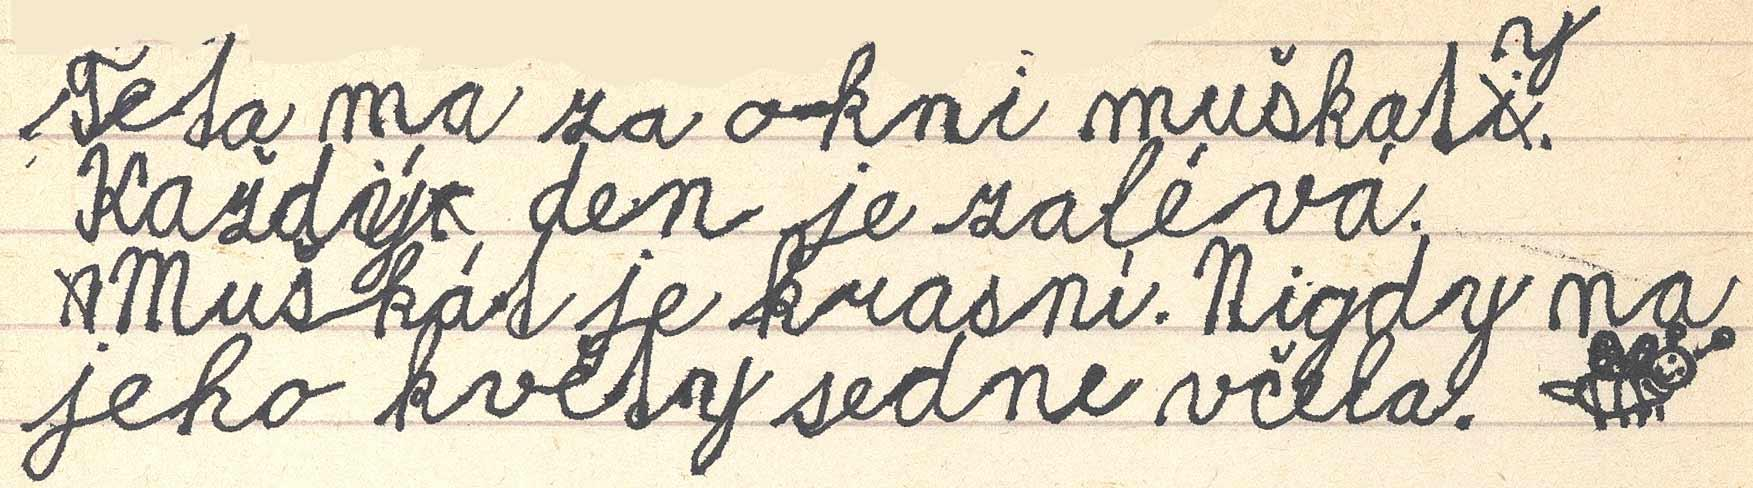 Teta ma za okni muškaty.
Každý den je zalévá.
Muškát je krasní. Nigdy na
jeho květy sedne včela.